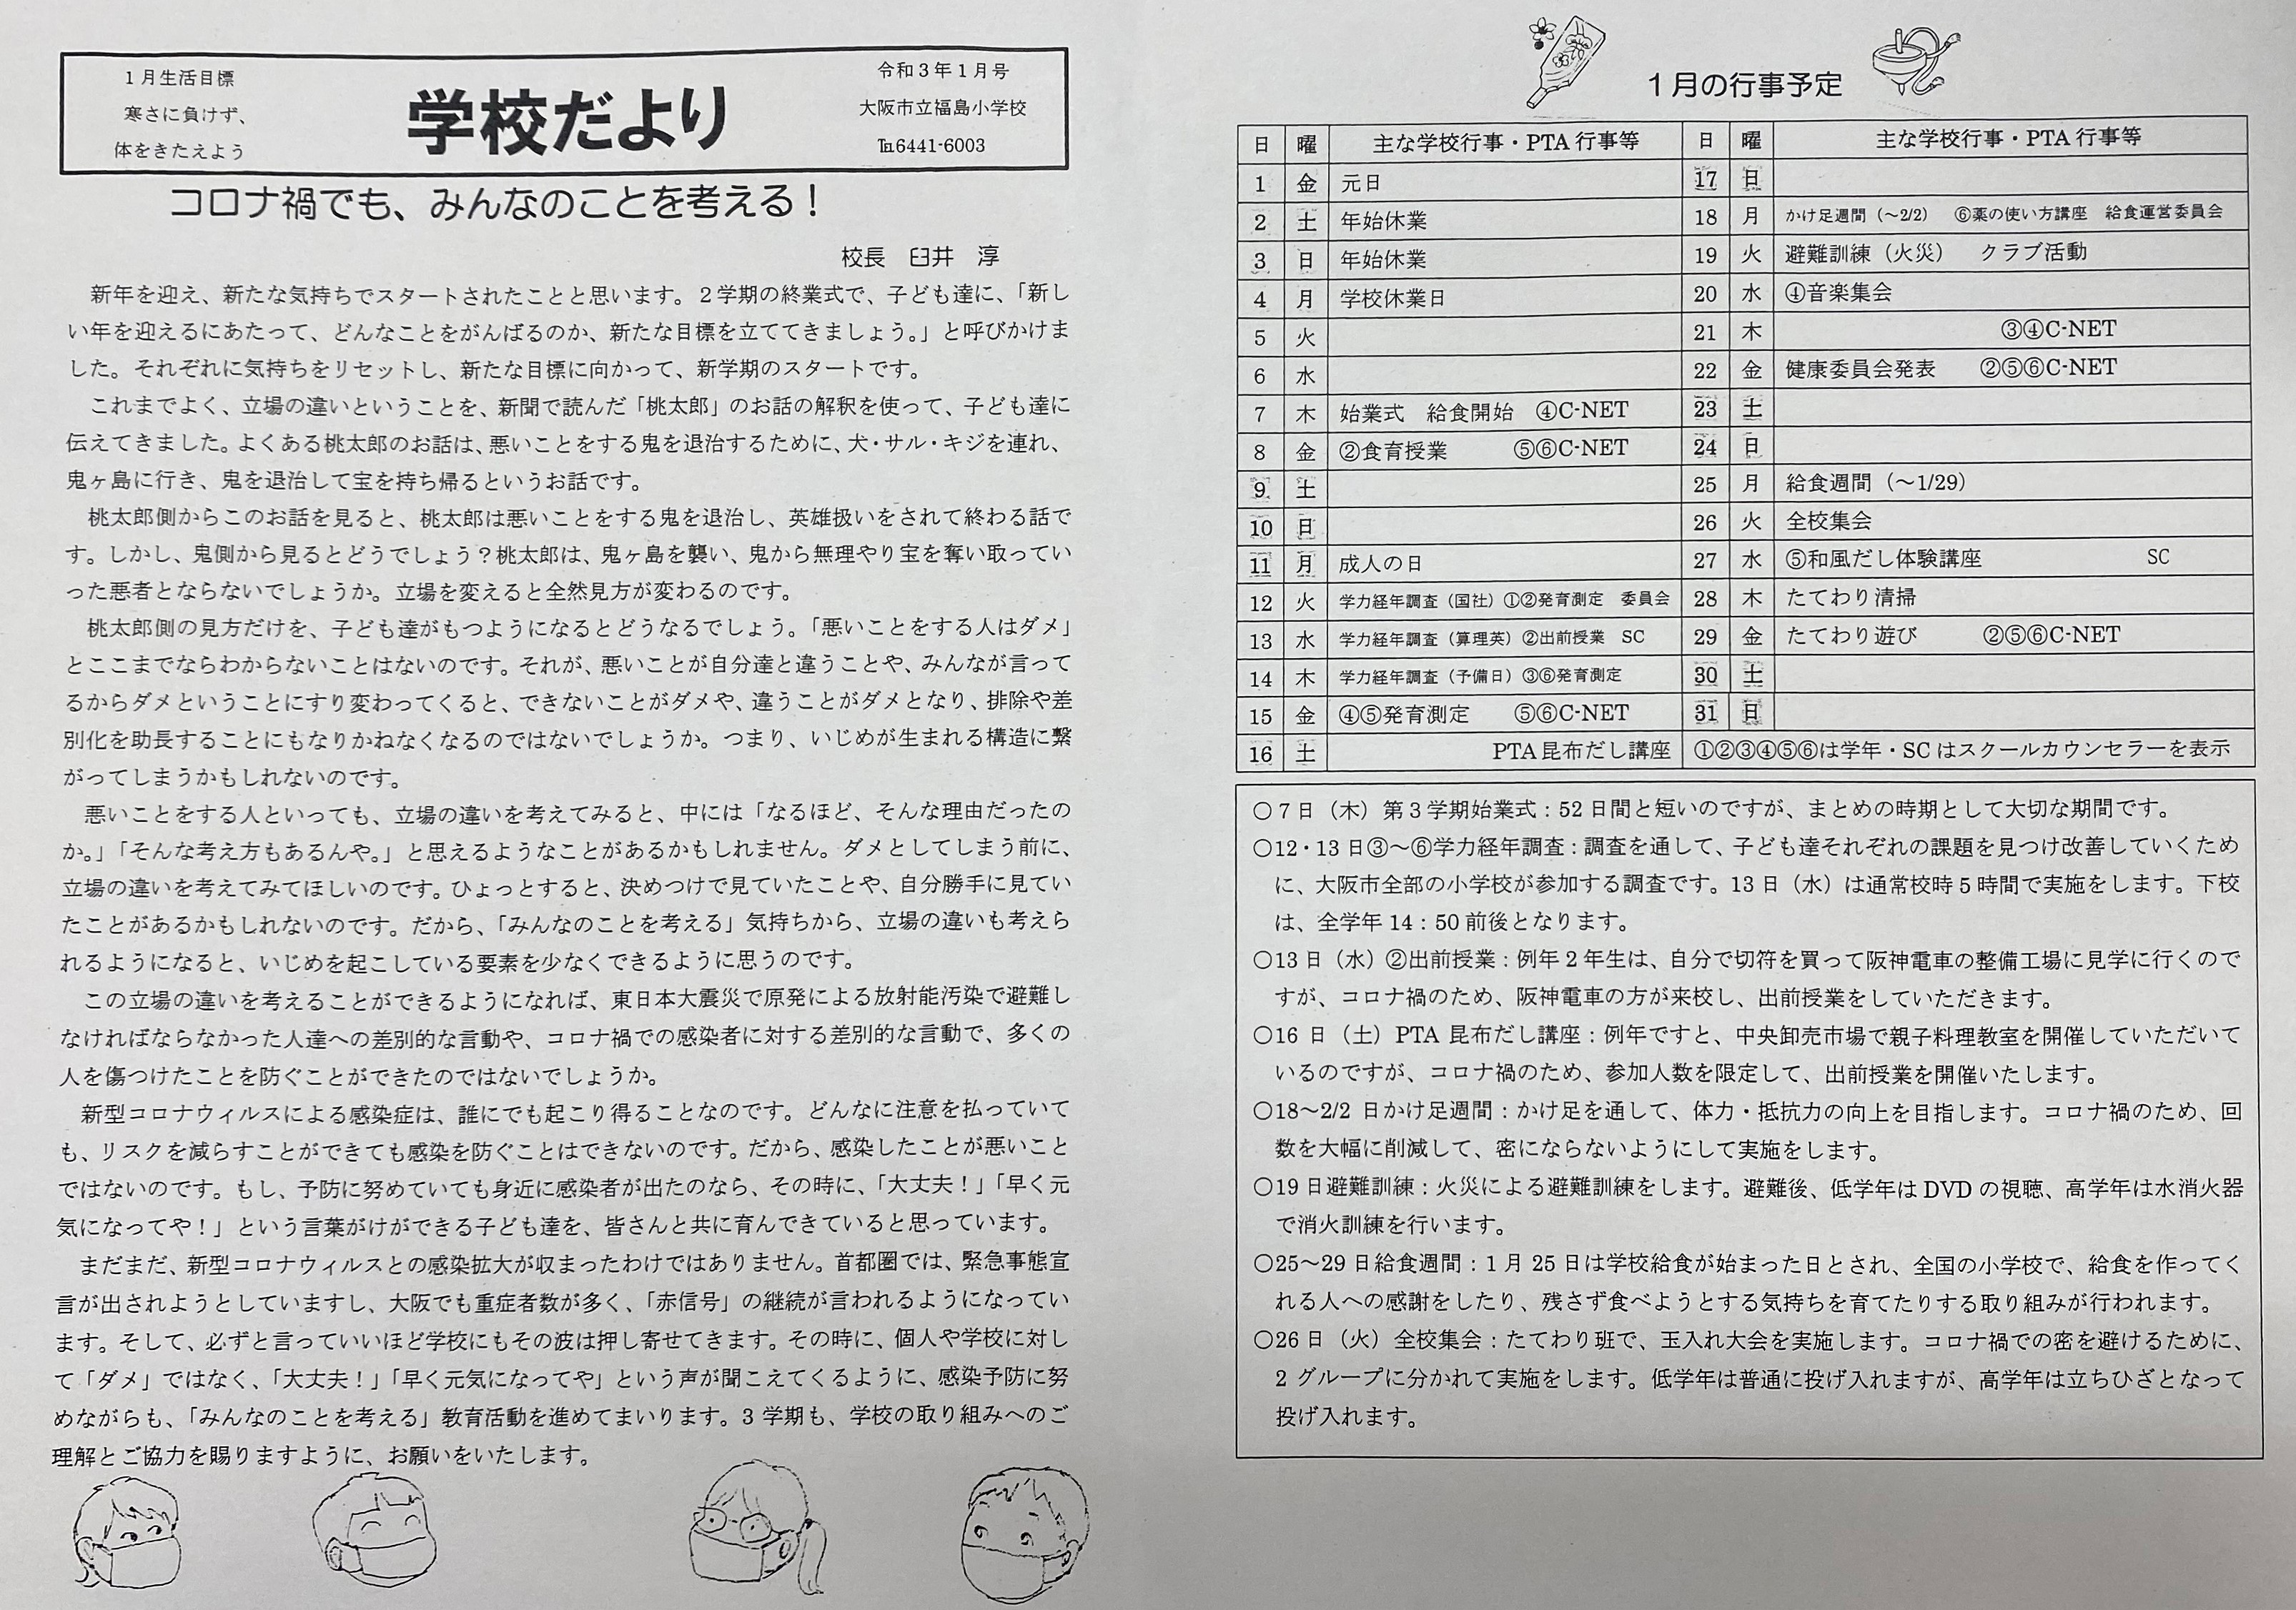 1月生活目標
寒さに負けず、
体をきたえよう
学校だより
令和3年1月号
大阪市立福島小学校
℡6441-6003
コロナ禍でも、みんなのことを考える！
校長　臼井　淳
新年を迎え、新たな気持ちでスタートされたことと思います。2学期の終業式で、子ども達に、「新し
い年を迎えるにあたって、どんなことをがんばるのか、新たな目標を立ててきましょう。」と呼びかけま
した。それぞれに気持ちをリセットし、新たな目標に向かって、新学期のスタートです。
これまでよく、立場の違いということを、新聞で読んだ「桃太郎」のお話の解釈を使って、子ども達に
伝えてきました。よくある桃太郎のお話は、悪いことをする鬼を退治するために、犬・サル・キジを連れ、
鬼ヶ島に行き、鬼を退治して宝を持ち帰るというお話です。
桃太郎側からこのお話を見ると、桃太郎は悪いことをする鬼を退治し、英雄扱いをされて終わる話で
す。しかし、鬼側から見るとどうでしょう？桃太郎は、鬼ヶ島を襲い、鬼から無理やり宝を奪い取ってい
った悪者とならないでしょうか。立場を変えると全然見方が変わるのです。
桃太郎側の見方だけを、子ども達がもつようになるとどうなるでしょう。「悪いことをする人はダメ」
とここまでならわからないことはないのです。それが、悪いことが自分達と違うことや、みんなが言って
るからダメということにすり変わってくると、できないことがダメや、違うことがダメとなり、排除や差
別化を助長することにもなりかねなくなるのではないでしょうか。つまり、いじめが生まれる構造に繋
がってしまうかもしれないのです。
悪いことをする人といっても、立場の違いを考えてみると、中には「なるほど、そんな理由だったの
か。」「そんな考え方もあるんや。」と思えるようなことがあるかもしれません。ダメとしてしまう前に、
立場の違いを考えてみてほしいのです。ひょっとすると、決めつけで見ていたことや、自分勝手に見てい
たことがあるかもしれないのです。だから、「みんなのことを考える」気持ちから、立場の違いも考えら
れるようになると、いじめを起こしている要素を少なくできるように思うのです。
この立場の違いを考えることができるようになれば、東日本大震災で原発による放射能汚染で避難し
なければならなかった人達への差別的な言動や、コロナ禍での感染者に対する差別的な言動で、多くの
人を傷つけたことを防ぐことができたのではないでしょうか。
新型コロナウィルスによる感染症は、誰にでも起こり得ることなのです。どんなに注意を払っていて
も、リスクを減らすことができても感染を防ぐことはできないのです。だから、感染したことが悪いこと
ではないのです。もし、予防に努めていても身近に感染者が出たのなら、その時に、「大丈夫！」「早く元
気になってや！」という言葉がけができる子ども達を、皆さんと共に育んできていると思っています。
まだまだ、新型コロナウィルスとの感染拡大が収まったわけではありません。首都圏では、緊急事態宣
言が出されようとしていますし、大阪でも重症者数が多く、「赤信号」の継続が言われるようになってい
ます。そして、必ずと言っていいほど学校にもその波は押し寄せてきます。その時に、個人や学校に対し
て「ダメ」ではなく、「大丈夫！」「早く元気になってや」という声が聞こえてくるように、感染予防に努
めながらも、「みんなのことを考える」教育活動を進めてまいります。3学期も、学校の取り組みへのご
理解とご協力を賜りますように、お願いをいたします。
1月の行事予定
日　曜　主な学校行事・PTA行事等　日　曜　主な学校行事・PTA行事等
1　金　元日　17　日
2　土　年始休業　18　月　かけ足週間（～2/2）　⑥薬の使い方講座　給食運営委員会
3　日　年始休業　19　火　避難訓練（火災）　クラブ活動
4　月　学校休業日　20　水　④音楽集会
5　火　21　木　③④C-NET
6　水　22　金　健康委員会発表　②⑤⑥C-NET
7　木　始業式　給食開始　④C-NET　23　土
8　金　②食育授業　⑤⑥C-NET　24　日
9　土　25　月　給食週間（～1/29）
10　日　26　火　全校集会
11　月　成人の日　27　水　⑤和風だし体験講座　SC
12　火　学力経年調査（国社）①②発育測定　委員会　28　木　たてわり清掃
13　水　学力経年調査（算理英）②出前授業　SC　29　金　たてわり遊び　②⑤⑥C-NET
14　木　学力経年調査（予備日）③⑥発育測定　30　土
15　金　④⑤発育測定　⑤⑥C-NET　31　日
16　土　PTA昆布だし講座　①②③④⑤⑥は学年・SCはスクールカウンセラーを表示
○7日（木）第3学期始業式：52日間と短いのですが、まとめの時期として大切な期間です。
○12・13日③～⑥学力経年調査：調査を通して、子ども達それぞれの課題を見つけ改善していくため
に、大阪市全部の小学校が参加する調査です。13日（水）は通常校時5時間で実施をします。下校
は、全学年14：50前後となります。
○13日（水）②出前授業：例年2年生は、自分で切符を買って阪神電車の整備工場に見学に行くので
すが、コロナ禍のため、阪神電車の方が来校し、出前授業をしていただきます。
○16日（土）PTA昆布だし講座：例年ですと、中央卸売市場で親子料理教室を開催していただいて
いるのですが、コロナ禍のため、参加人数を限定して、出前授業を開催いたします。
○18～2/2日かけ足週間：かけ足を通して、体力・抵抗力の向上を目指します。コロナ禍のため、回
数を大幅に削減して、密にならないようにして実施をします。
○19日避難訓練：火災による避難訓練をします。避難後、低学年はDVDの視聴、高学年は水消火器
で消火訓練を行います。
○25～29日給食週間：1月25日は学校給食が始まった日とされ、全国の小学校で、給食を作ってく
れる人への感謝をしたり、残さず食べようとする気持ちを育てたりする取り組みが行われます。
○26日（火）全校集会：たてわり班で、玉入れ大会を実施します。コロナ禍での密を避けるために、
2グループに分かれて実施をします。低学年は普通に投げ入れますが、高学年は立ちひざとなって
投げ入れます。